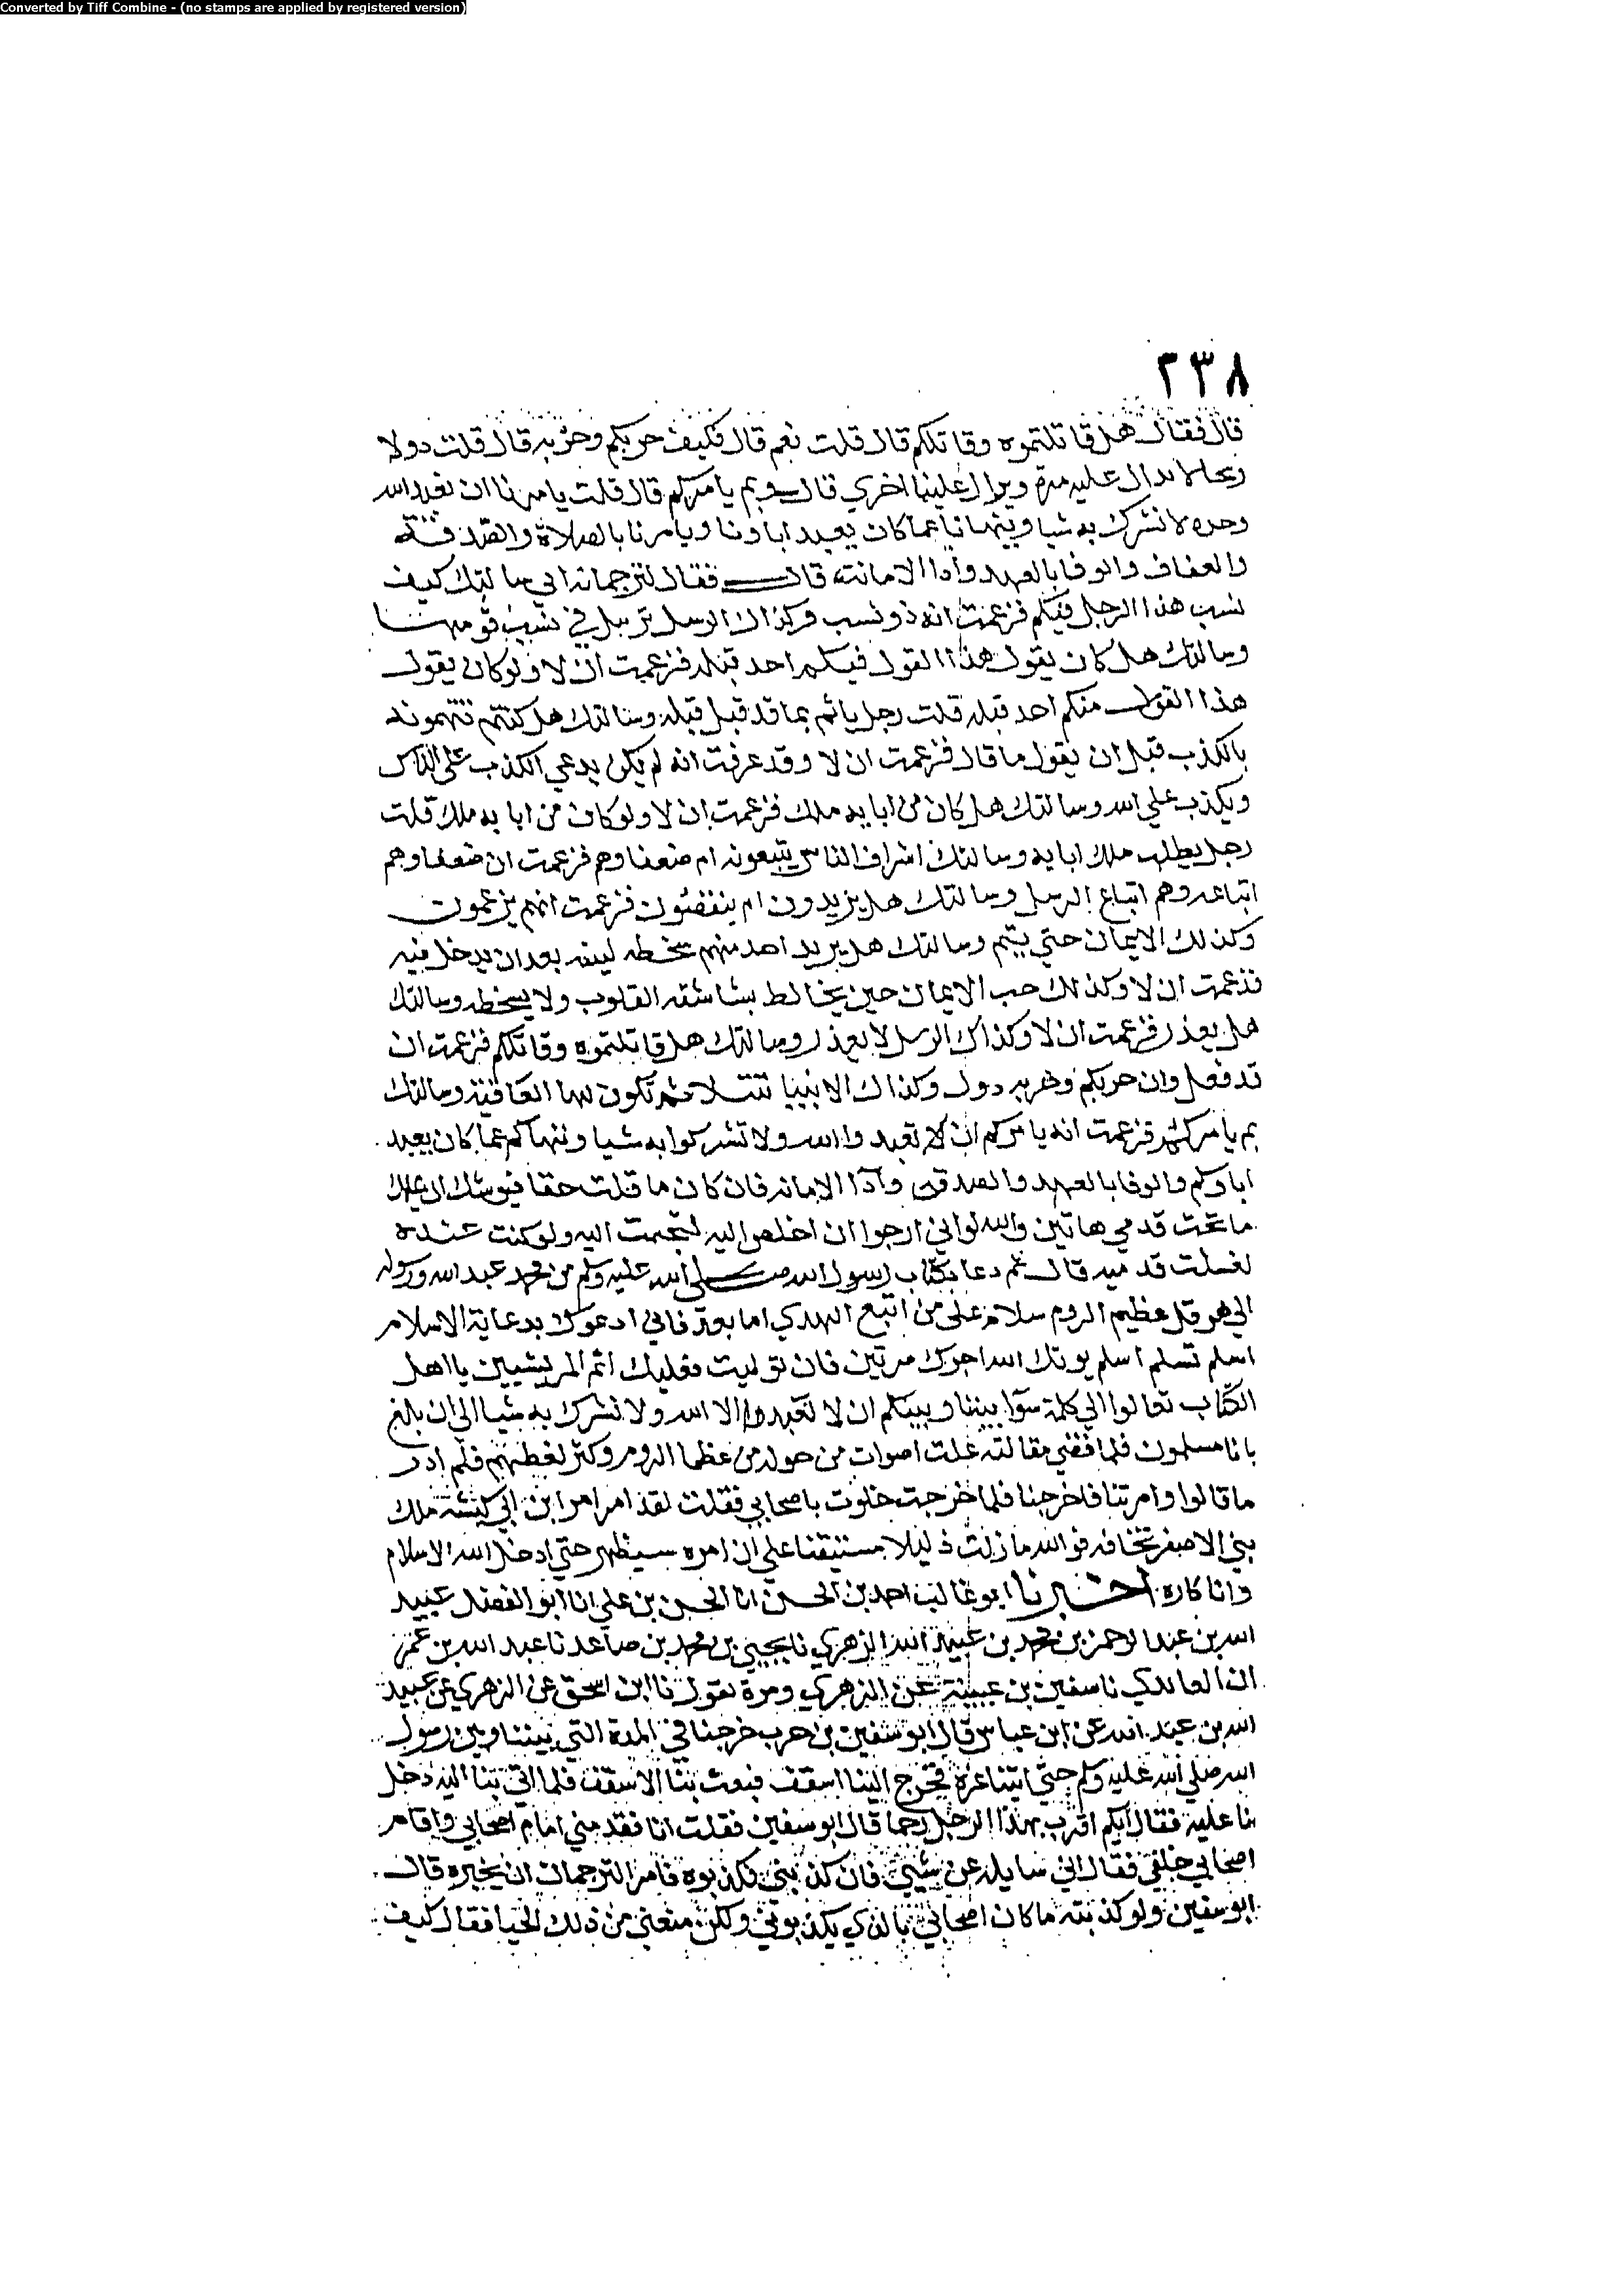 Converted by Tiff Combine - (no stamps are applied by registered version)
٢٣٨
قال فقال هل قاتلتموه وقاتلكم قال قلت نعم قال فكيف حربكم وحربه قال قلت دولا
وسجالا ندال عليه مرة ويدال علينا اخري قال وبم يامركم قال قلت يامرنا ان نعبد الله
وحده لا نشرك به شيا وينهانا عما كان يعبد اباونا ويامرنا بالصلاة والصدقة
والعفاف والوفا بالعهد وادا الامانة قال فقال لترجمانه اني سالتك كيف
نسب هذا الرجل فيكم فزعمت انه ذو نسب وكذاك الرسل ترسل في نسب قومها
وسالتك هل كان يقول هذا القول فيكم احد قبله فزعمت ان لا ولو كان يقول
هذا القول منكم احد قبله قلت رجل ياتم بما قد قيل قبله وسالتك هل كنتم تتهمونه
بالكذب قبل ان يقول ما قال فزعمت ان لا وقد عرفت انه لم يكن يدعي الكذب علي الناس
ويكذب علي الله وسالتك هل كان من ابايه ملك فزعمت ان لا ولو كان من ابايه ملك قلت
رجل يطلب ملك ابايه وسالتك اشراف الناس يتبعونه ام ضعفاوهم فزعمت ان ضعفاوهم
اتباعه وهم اتباع الرسل وسالتك هل يزيدون ام ينقصون فزعمت انهم يزعمون
وكذلك الايمان حتي يتم وسالتك هل يريد احد منهم سخطه لدينه بعد ان يدخل فيه
فزعمت ان لا وكذلك حب الايمان حين يخالط بشاشته القلوب ولا يسخطه وسالتك
هل يغدر فزعمت ان لا وكذاك الرسل لا يغدر وسالتك هل قاتلتموه وقاتلكم فزعمت ان
قد فعل وان حربكم وحربه دول وكذاك الانبيا تبتلا ثم تكون لها العاقبة وسالتك
بم يامركم فزعمت انه يامركم ان لا تعبدوا الله ولا تشركوا به شيا وينهاكم عما كان يعبد
اباوكم والوفا بالعهد والصدقة وادا الامانه فان كان ما قلت حقا فيوشك ان يملك
ما تحت قدمي هاتين والله لو اني ارجوا ان اخلص اليه لتجشمت اليه ولو كنت عنده
لغسلت قدميه قال ثم دعا بكتاب رسول الله صلى الله عليه وسلم من محمد عبد الله ورسوله
الي هرقل عظيم الروم سلام على من اتبع الهدي اما بعد فاني ادعوك بدعاية الاسلام
اسلم تسلم اسلم يوتك الله اجرك مرتين فان توليت فعليك اثم المريسيين يا اهل
الكتاب تعالوا الي كلمة سوآ بيننا وبينكم ان لا نعبد الا الله ولا نشرك به شيا الي ان بلغ
بانا مسلمون فلما قضي مقالته علت اصوات من حوله من عظما الروم وكثر لغطهم فلم ادر
ما قالوا وامرتنا فاخرجنا فلما خرجت خلوت باصحابي فقلت لقد امر امر ابن ابي كبشة ملك
بني الاصفر تخافه فوالله ما زلت ذليلا مستيقنا علي ان امره سيظهر حتي ادخل الله الاسلام
وانا كاره اخبرنا ابو غالب احمد بن الحسن انا الحسن بن علي انا ابو الفضل عبيد
الله بن عبد الرحمن بن محمد بن عبيد الله الزهري نا يحيي بن محمد بن صاعد نا عبد الله بن عمر
ان العابدي نا سفين بن عيينة عن الزهري ومرة يقول نا ابن اسحق عن الزهري عن عبيد
الله بن عبد الله عن ابن عباس قال ابو سفين بن حرب خرجنا في المدة التي بيننا وبين رسول
الله صلي الله عليه وسلم حتي اتينا غزة فخرج الينا اسقف فبعث بنا الاسقف فلما اتي بنا اليه دخل
بنا عليه فقال ايكم اقرب بهذا الرجل رحما قال ابو سفين فقلت انا فقدمني امام اصحابي واقام
اصحابي خلفي فقال اني سايله عن شيي فان كذبني فكذبوه فامر الترجمان ان يخبره قال
ابو سفين ولو كذبته ما كان اصحابي بالذي يكذبوني ولكن منعني من ذلك الحيا فقال كيف